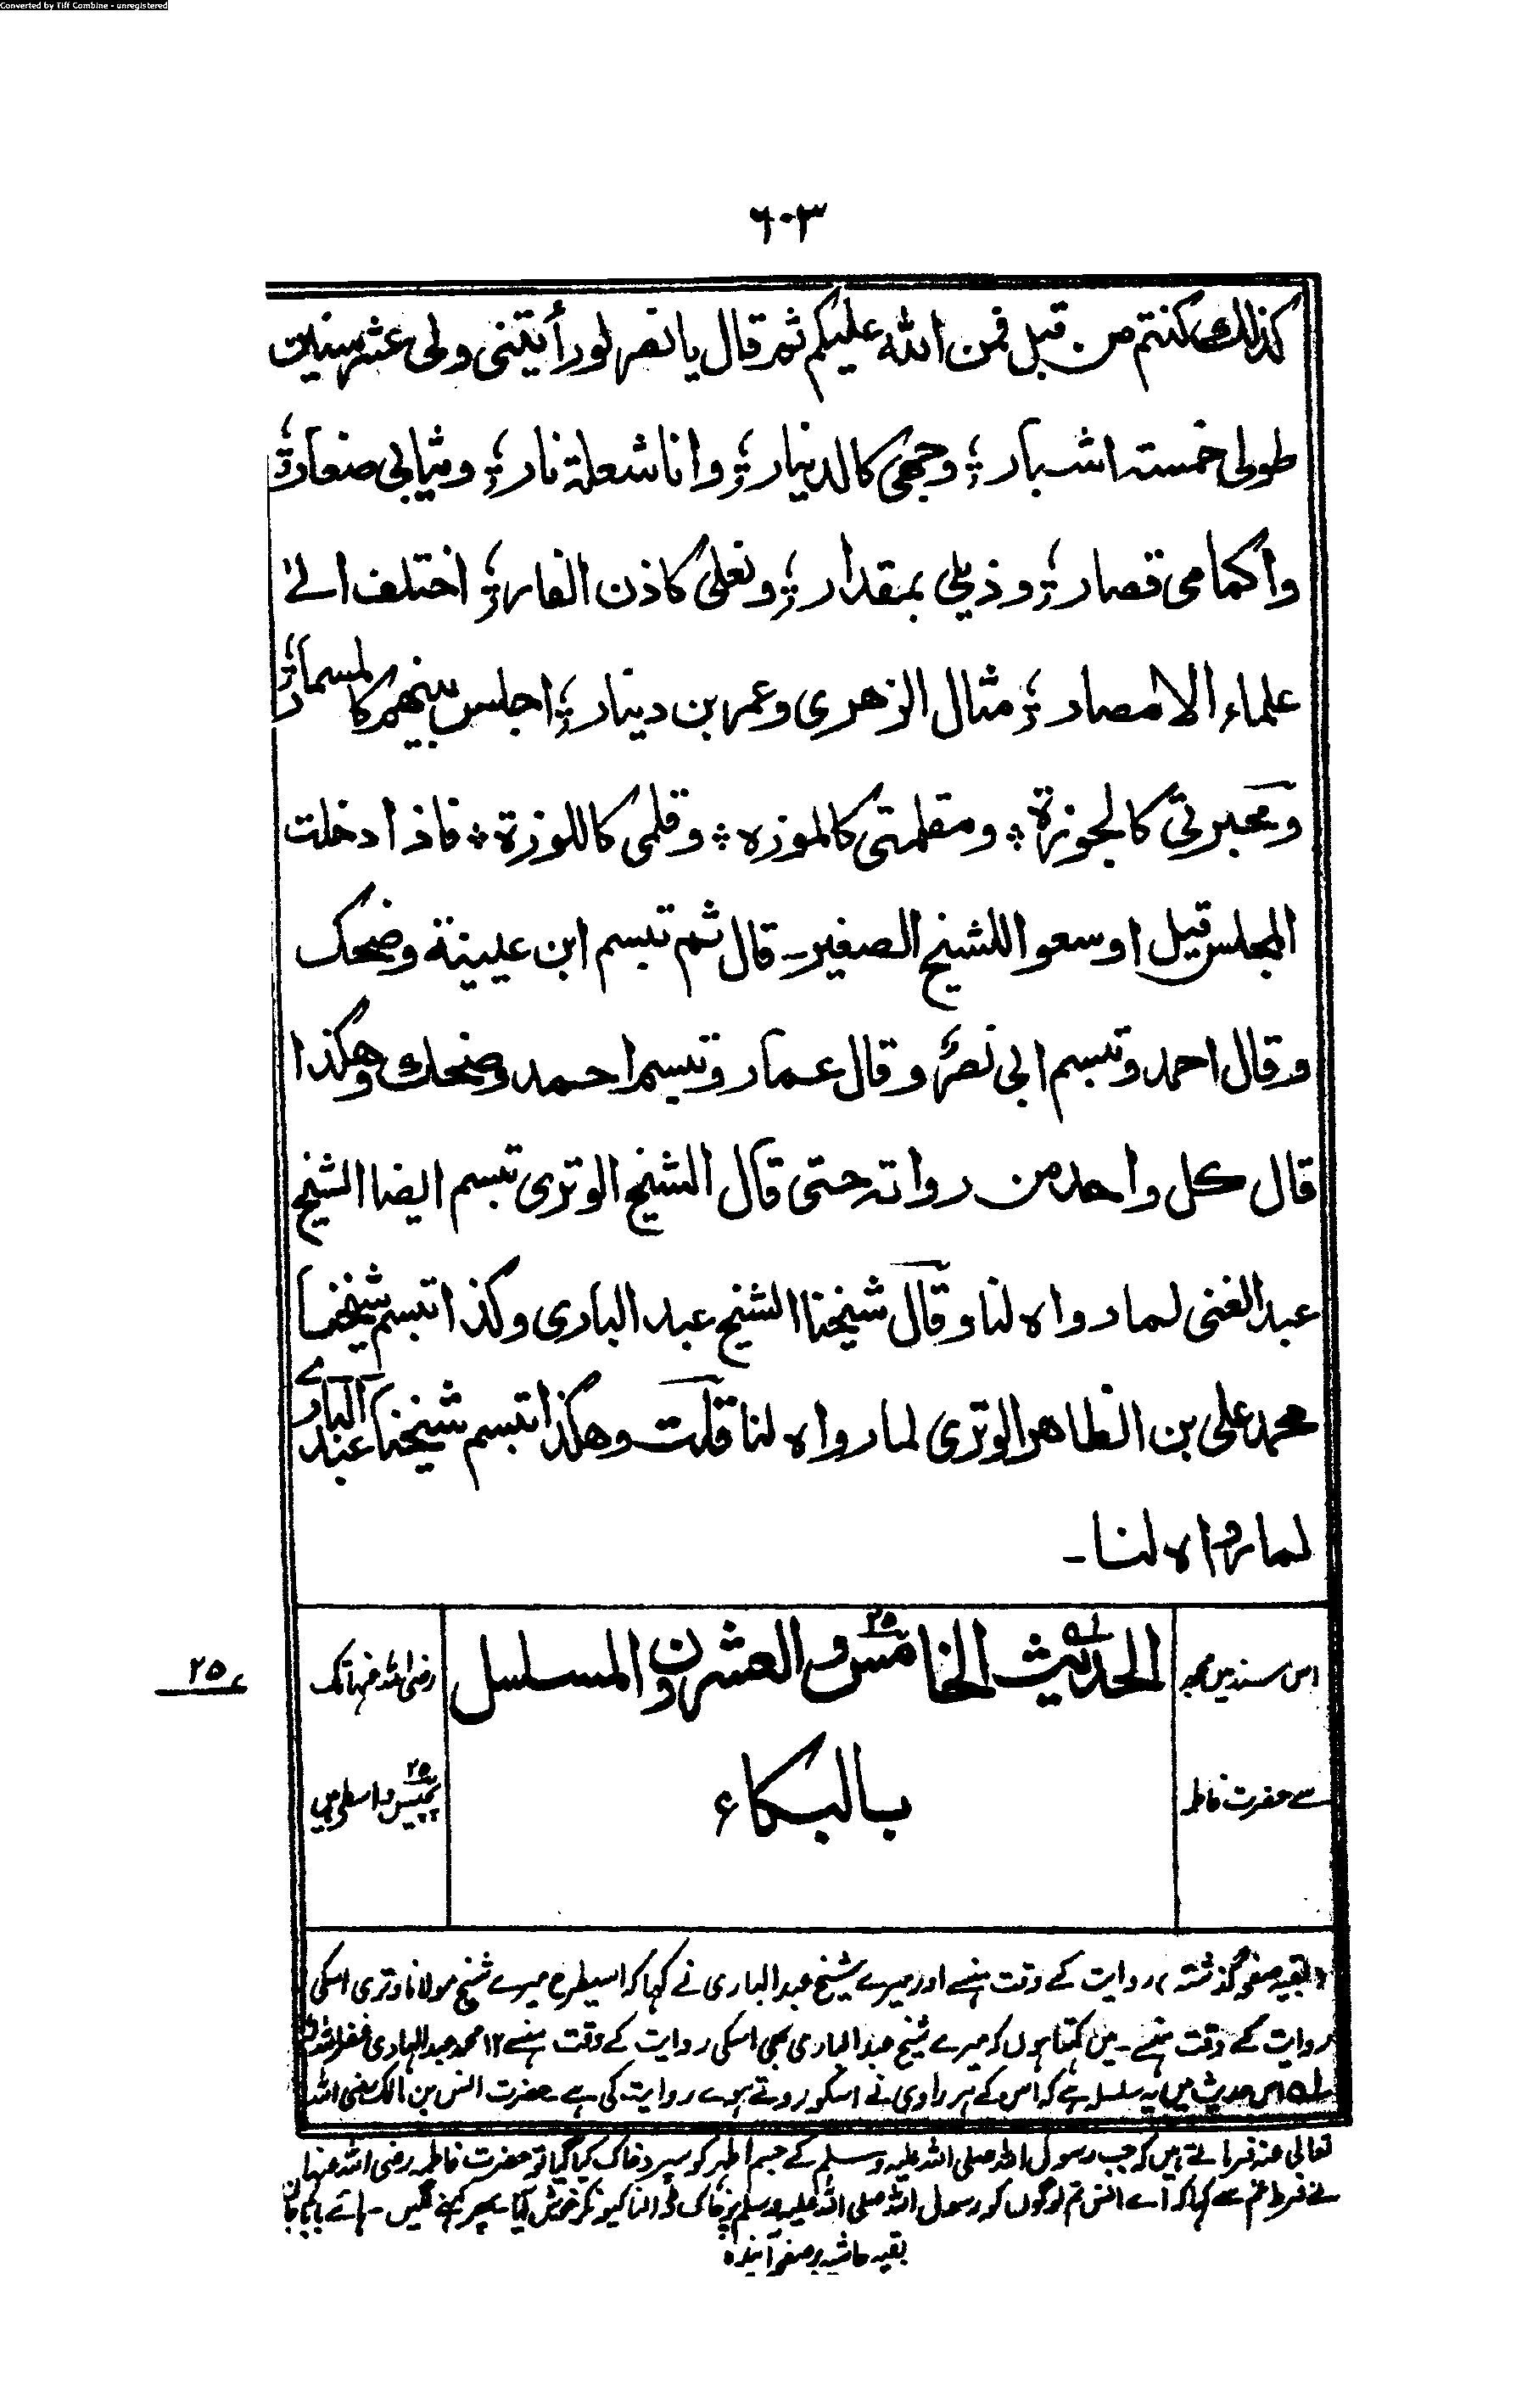 Converted by Tiff Combine - unregistered
٦٠٣
كذلك كنتم من قبل فمن الله عليكم ثم قال يا نصر لو رأيتني ولي عشر سنين
طولي خمسة اشبار ؛ وجهي كالدينار ؛ وانا شعلة نار ؛ وثيابي صغار ؛
وأكمامي قصار ؛ وذيلي بمقدار ؛ ونعلي كاذن الفار ؛ اختلف الى
علماء الامصار ؛ مثال الزهري وعمر بن دينار ؛ اجلس بينهم كالمسمار ؛
ومحبرتي كالجوزة ؞ ومقلمتي كالموزه ؞ وقلمي كاللوزة ؞ فاذا دخلت
المجلس قيل اوسعوا للشيخ الصغير۔ قال ثم تبسم ابن عيينة وضحك
وقال احمد وتبسم ابي نصر وقال عمار وتبسم احمد وضحك وهكذا
قال كل واحد من رواته حتى قال الشيخ الوتري تبسم ايضا الشيخ
عبد الغني لما رواه لنا وقال شيخنا الشيخ عبد الباري وكذا تبسم شيخنا
محمد علي بن الطاهر الوتري لما رواه لنا قلت وهكذا تبسم شيخنا عبد الباري
لما رواه لنا۔
اس سند میں مجھ
سے حضرت فاطمہ
الحديث الخامس والعشرون المسلسل
٢٥
بالبكاء
رضی اللہ عنہا تک
٢٥
پچیس واسطے ہیں
٢٥
(بقیہ صفحہ گذشتہ) روایت کے وقت ہنسے اور میرے شیخ عبد الباری نے کہا کہ اسیطرح میرے شیخ مولانا وتری اسکی
روایت کے وقت ہنسے۔ میں کہتا ہوں کہ میرے شیخ عبد الباری بھی اسکی روایت کے وقت ہنسے ١٢ محمد عبد الہادی غفر اللہ لہ
اس حدیث میں یہ سلسل ہے کہ اس کے ہر راوی نے اسکو روتے ہوے روایت کی ہے۔ حضرت انس بن مالک رضی اللہ
تعالی عنہ فرماتے ہیں کہ جب رسول اللہ صلی اللہ علیہ وسلم کے جسم اطہر کو سپرد خاک کیا گیا تو حضرت فاطمہ رضی اللہ عنہا
نے فرط غم سے کہا کہ اے انس تم لوگوں کو رسول اللہ صلی اللہ علیہ وسلم پر خاک ڈالنا کیونکر خوش آیا۔ پھر کہنے لگیں۔ ہائے بابا جان
بقیہ حاشیہ بر صفحہ آیندہ